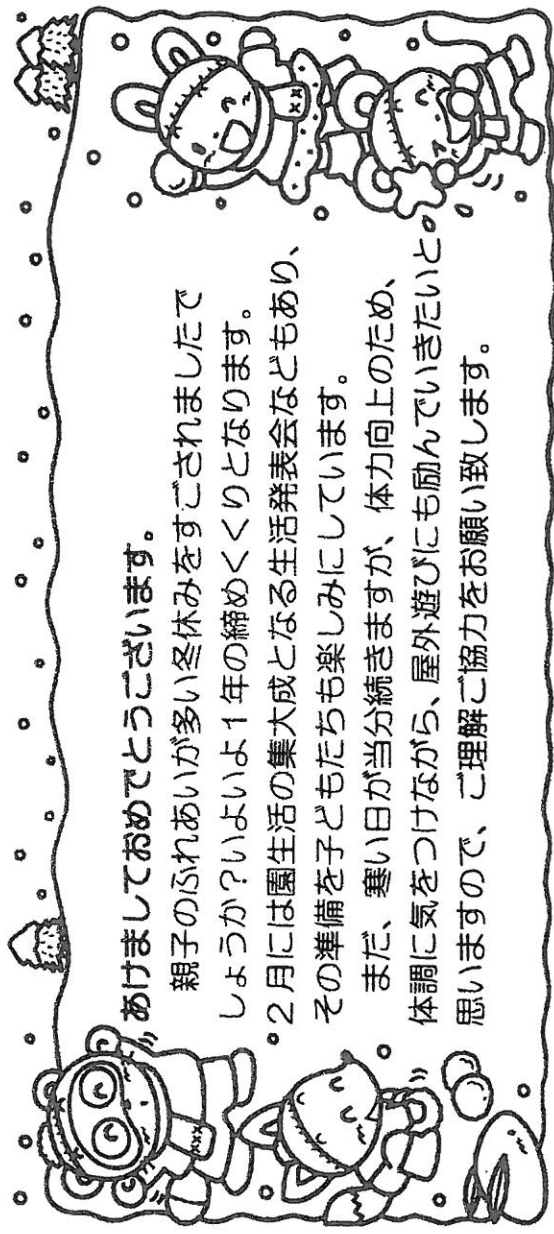 あけましておめでとうございます。
親子のふれあいが多い冬休みをすごされましたで
しょうか?いよいよ1年の締めくくりとなります。
2月には園生活の集大成となる生活発表会などもあり、
その準備を子どもたちも楽しみにしています。
まだ、寒い日が当分続きますが、体力向上のため、
体調に気をつけながら、屋外遊びにも励んでいきたいと
思いますので、ご理解ご協力をお願い致します。